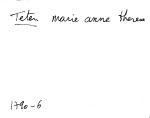 Teten marie anne therese
1790-6